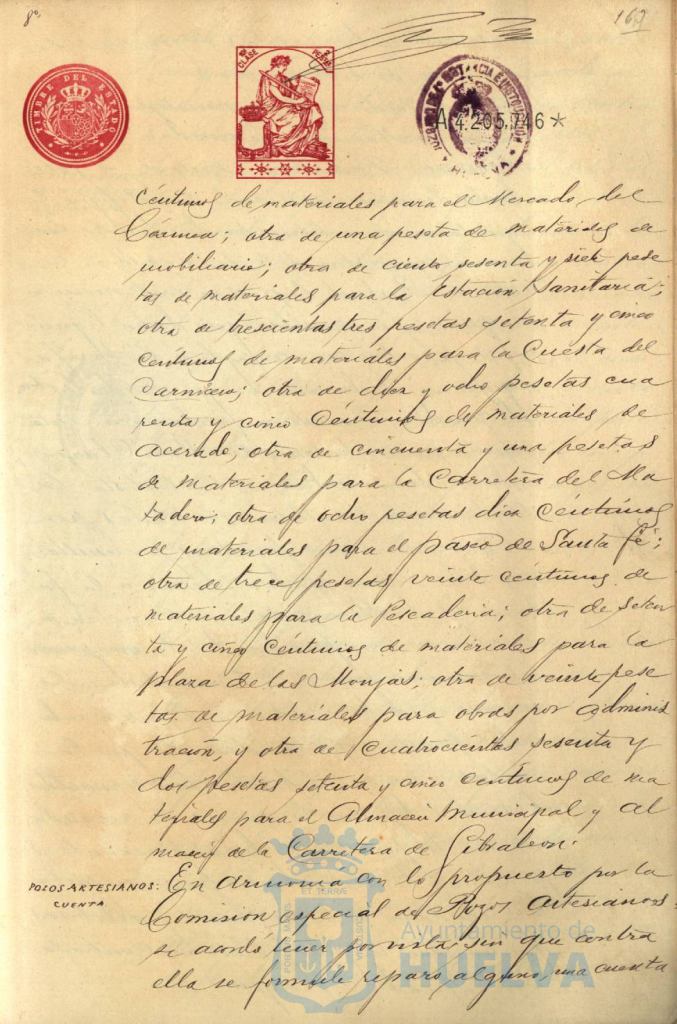 8º
167
TIMBRE DEL ESTADO
8ª CLASE
2 PESETAS
JUZGADO DE 1ª INSTANCIA E INSTRUCCION
HUELVA
A4.205,746*
céntimos de materiales para el Mercado del
Carmen; otra de una peseta de materiales de
mobiliario; otra de ciento sesenta y siete pese
tas de materiales para la Estación Sanitaria;
otra de trescientas tres pesetas setenta y cinco
centimos de materiales para la Cuesta del
Carnicero; otra de diez y ocho pesetas cua
renta y cinco Céntimos de materiales de
Acerado; otra de cincuenta y una pesetas
de materiales para la Carretera del Ma
tadero; otra de ocho pesetas diez céntimos
de materiales para el paseo de Santa fé;
otra de trece pesetas veinte céntimos de
materiales para la Pescaderia; otra de seten
ta y cinco céntimos de materiales para la
plaza de las Monjas; otra de veinte pese
tas de materiales para obras por adminis
tración, y otra de cuatrocientas sesenta y
dos pesetas setenta y cinco centimos de ma
teriales para el Almacén Municipal y al
macen de la Carretera de Gibraleon.
POZOS ARTESIANOS:
CUENTA
En armonia con lo propuesto por la
Comision especial de Pozos Artesianos
se acordó tener por vista sin que contra
ella se formule reparo alguno, una cuenta
Ayuntamiento de
HUELVA